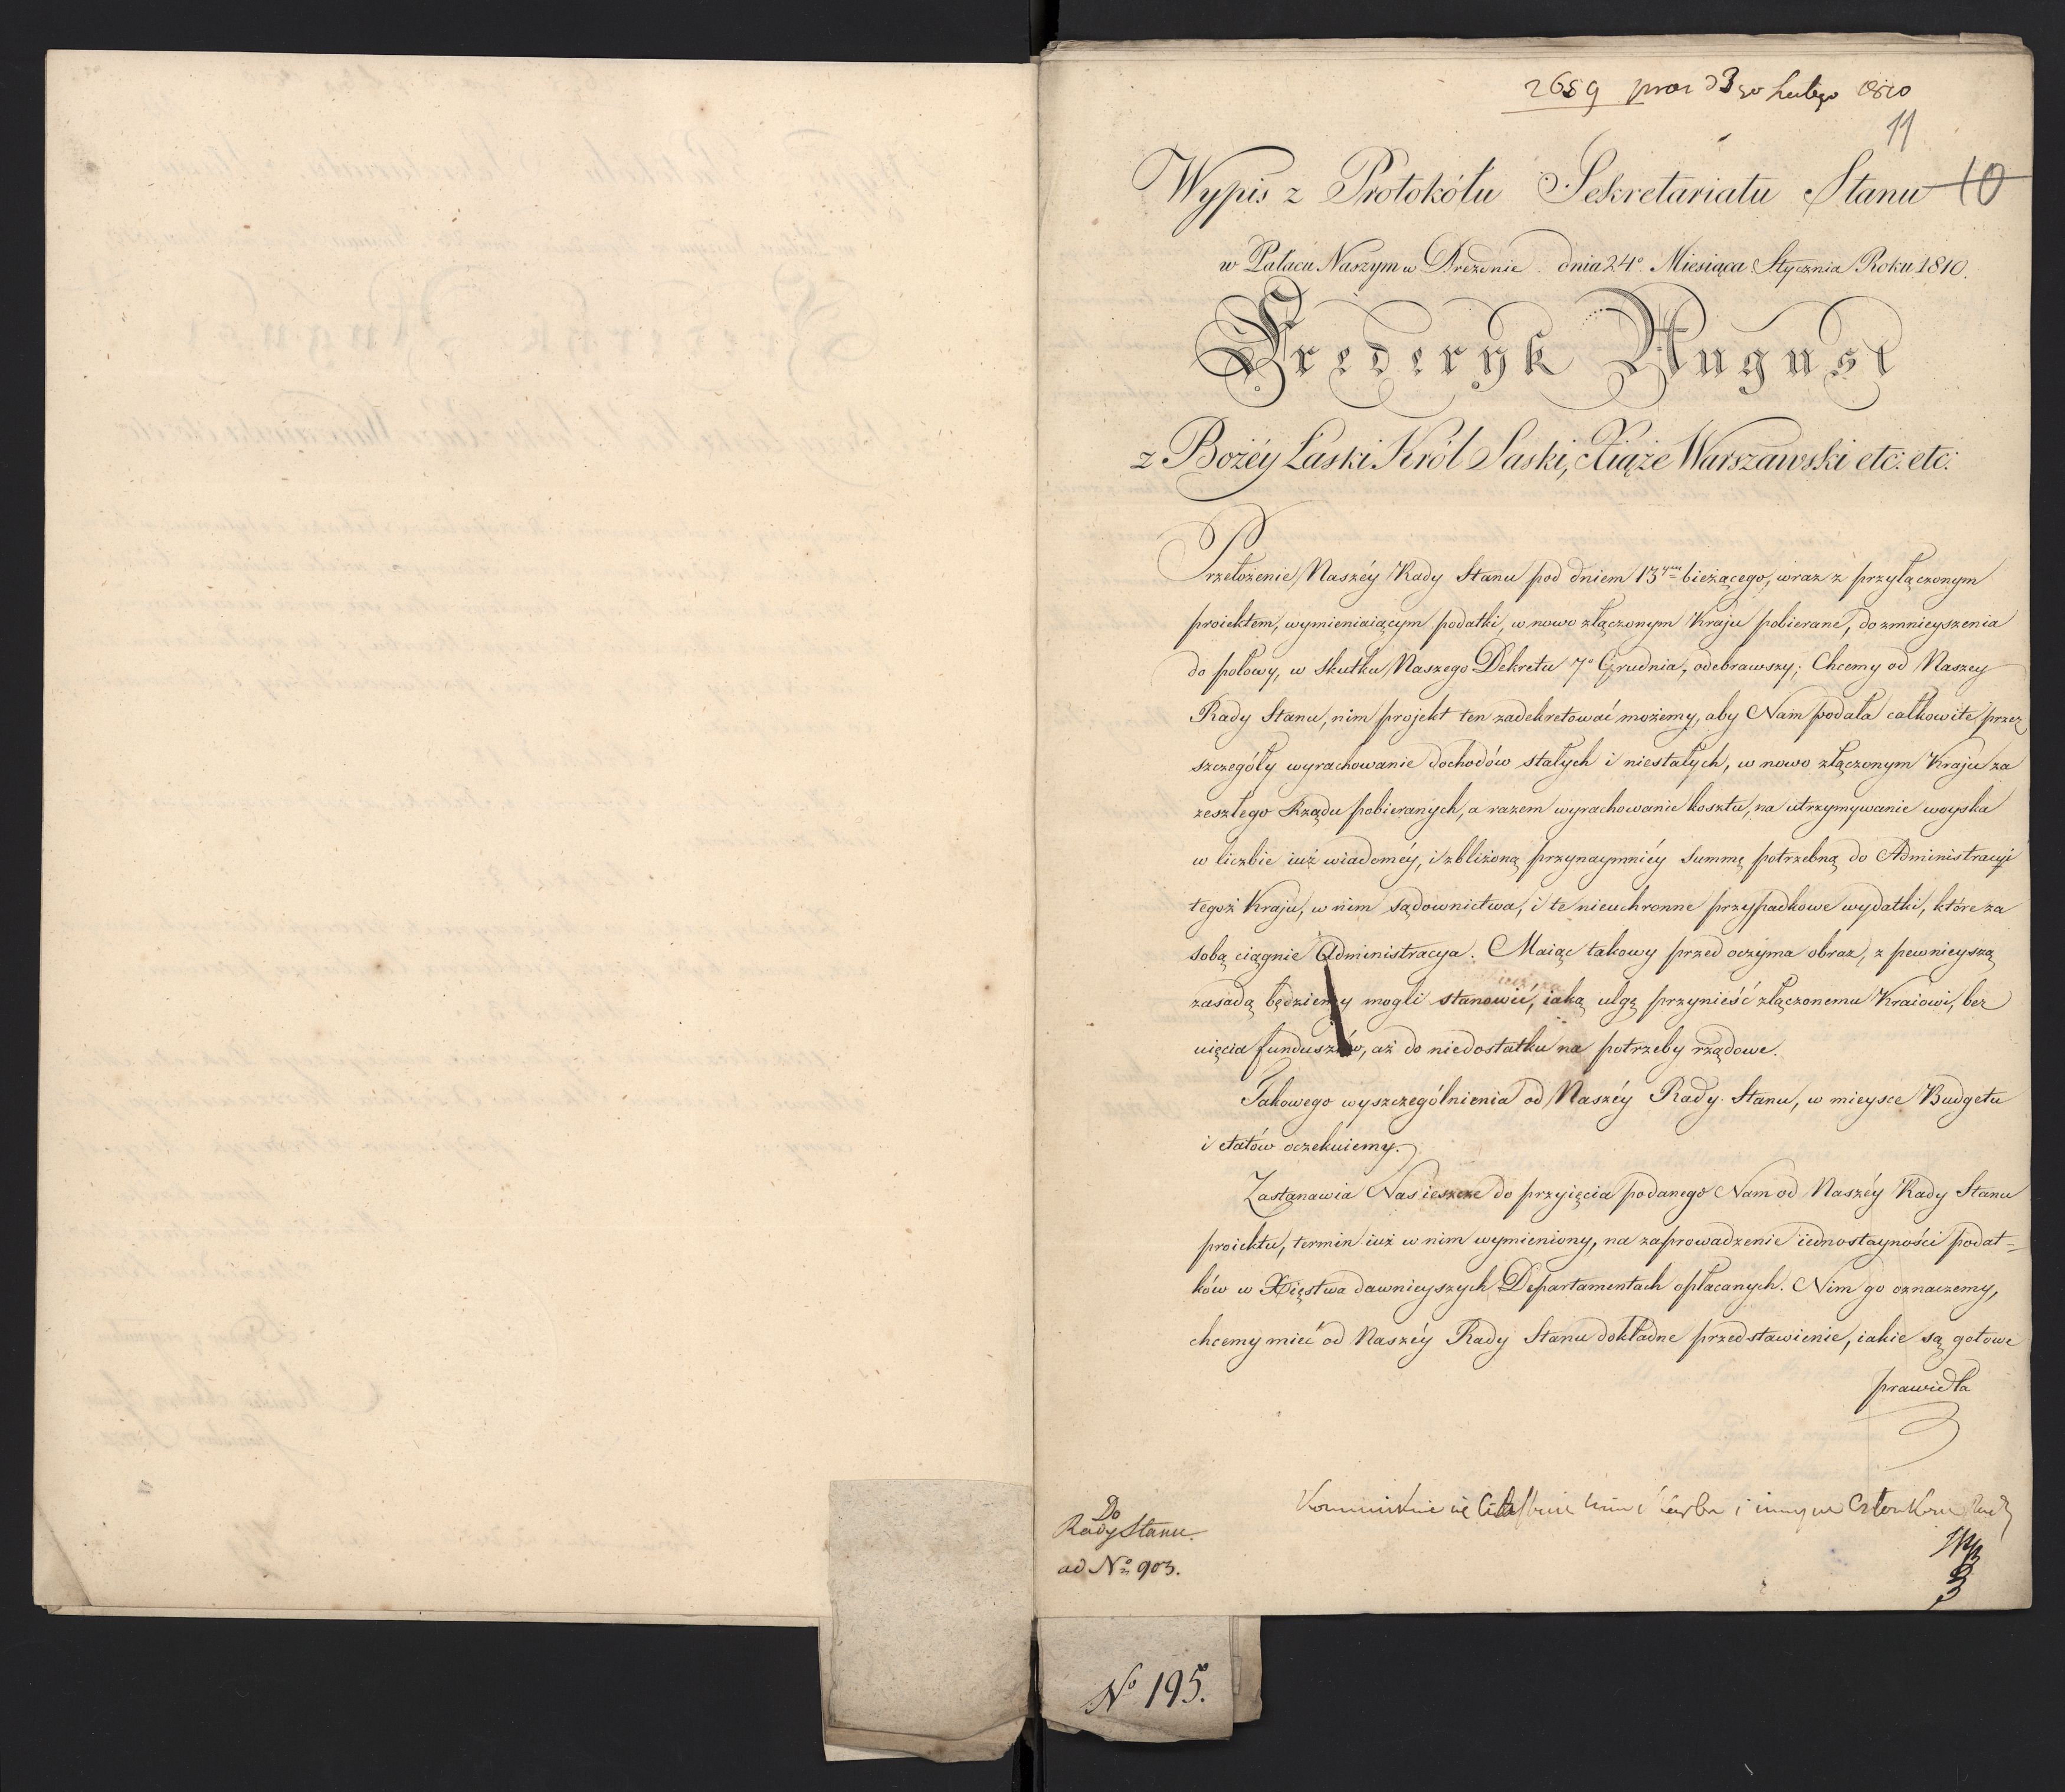 2659 praes d 3go Lutego 1810
11
Wypis z Protokółu Sekretariatu Stanu 10
w Pałacu Naszym w Dreźnie dnia 24o Miesiąca Stycznia Roku 1810.
Frederyk August
z Bożéy Łaski Król Saski, Xiąże Warszawski etc: etc:
Przełożenie Naszéy Rady Stanu pod dniem 13ym bieżącego, wraz z przyłączonym
proiektem, wymieniaiącym podatki, w nowo złączonym Kraju pobierane, do zmnieyszenia
do połowy, w skutku Naszego Dekretu 7o Grudnia, odebrawszy; Chcemy od Naszey
Rady Stanu, nim projekt ten zadekretować możemy, aby Nam podała całkowite przez
szczegóły wyrachowanie dochodów stałych i niestałych, w nowo złączonym Kraju za
zeszłego Rządu pobieranych, a razem wyrachowanie kosztu, na utrzymywanie woyska
w liczbie iuż wiadoméy, i zbliżoną przynaymniéy summę potrzebną do Administracyi
tegoż Kraju, w nim sądownictwa, i te nieuchronne przypadkowe wydatki, które za
sobą ciągnie Administracya. Maiąc takowy przed oczyma obraz, z pewnieyszą
zasadą będziemy mogli stanowić, iaką ulgę przynieść złączonemu Kraiowi, bez
uięcia funduszów, aż do niedostatku na potrzeby rządowe.
Takowego wyszczególnienia od Naszéy Rady Stanu, w mieysce Budgetu
i etatów oczekuiemy.
Zastanawia Nas ieszcze do przyięcia podanego Nam od Naszéy Rady Stanu
proiektu, termin iuż w nim wymieniony, na zaprowadzenie iednostayności podat=
ków w Xięstwa dawnieyszych Departamentach opłacanych. Nim go oznaczemy,
chcemy mieć od Naszéy Rady Stanu dokładne przedstawienie, iakie są gotowe
prawidła
Do
Rady Stanu.
ad No 903.
i innym Członkom Rady
No 195.